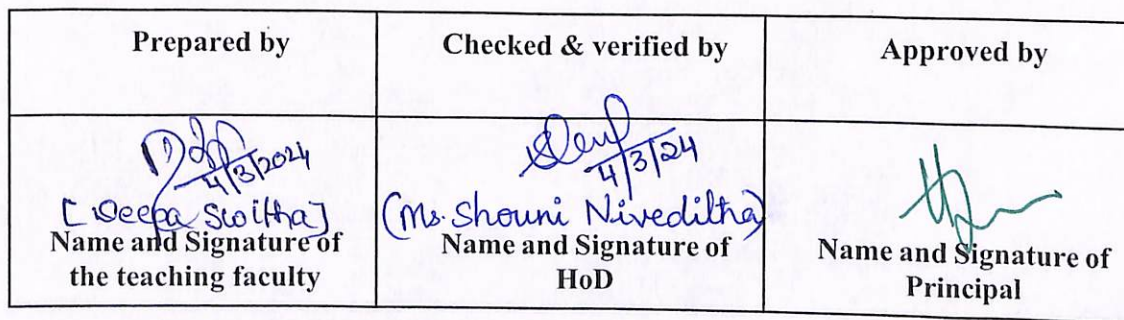 Prepared by
Checked & verified by
Approved by
4/3/2024
[Deepa Switha]
Name and Signature of
the teaching faculty
4/3/24
(Ms. Shouni Niveditha)
Name and Signature of
HoD
Name and Signature of
Principal